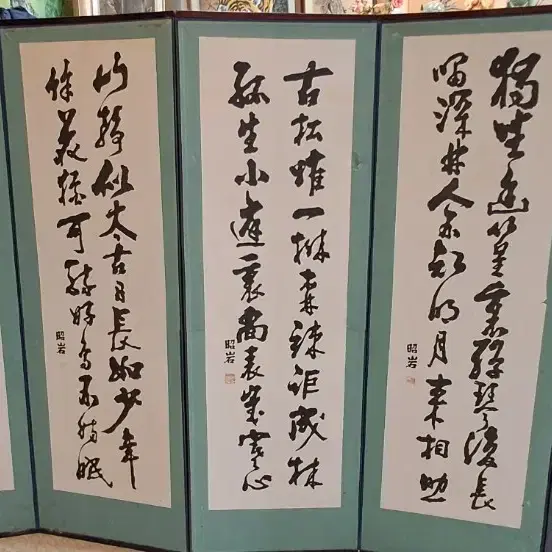 獨坐幽篁裏彈琴復長
嘯深林人不知明月来相照
昭岩
古松惟一樹森竦詎成林
孤生小庭裏尚表歲寒心
昭岩
山靜似太古日長如少年
餘花猶可醉好鳥不妨眠
昭岩